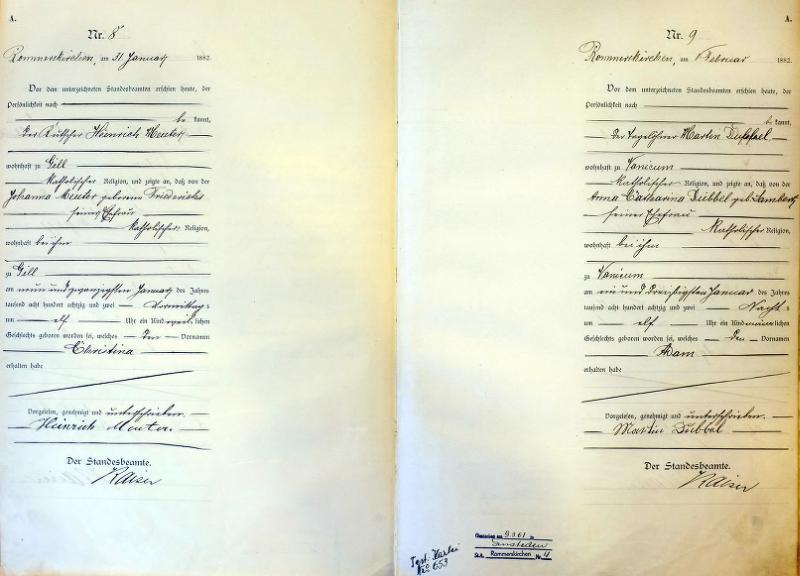 A.
Nr. 8
Rommerskirchen, am 31 Januar 1882.
Vor dem unterzeichneten Standesbeamten erschien heute, der
Persönlichkeit nach
be kannt,
der Heinrich
wohnhaft zu Gill
katholischer Religion, und zeigte an, daß von der
Johanna geborene Friederichs
seiner Ehefrau
katholischer Religion,
wohnhaft bei ihm
zu Gill
am neun und zwanzigsten Januar des Jahres
tausend acht hundert achtzig und zwei Vormittags
um elf Uhr ein Kind weiblichen
Geschlechts geboren worden sei, welches den Vornamen
Christina
erhalten habe
Vorgelesen, genehmigt und unterschrieben.
Heinrich
Der Standesbeamte.
Kaiser
A.
Nr. 9
Rommerskirchen, am Februar 1882.
Vor dem unterzeichneten Standesbeamten erschien heute, der
Persönlichkeit nach
be kannt,
der Tagelöhner Martin Dubbel
wohnhaft zu Vanicum
katholischer Religion, und zeigte an, daß von der
Anna Catharina Dubbel geb. Lambertz
seiner Ehefrau
katholischer Religion,
wohnhaft bei ihm
zu Vanicum
am ein und dreißigsten Januar des Jahres
tausend acht hundert achtzig und zwei Nachts
um elf Uhr ein Kind männlichen
Geschlechts geboren worden sei, welches den Vornamen
Adam
erhalten habe
Vorgelesen, genehmigt und unterschrieben.
Martin Dubbel
Der Standesbeamte.
Kaiser
am 9.9.61 in
Sinsteden
St.A. Rommerskirchen Nr. 4
No 653